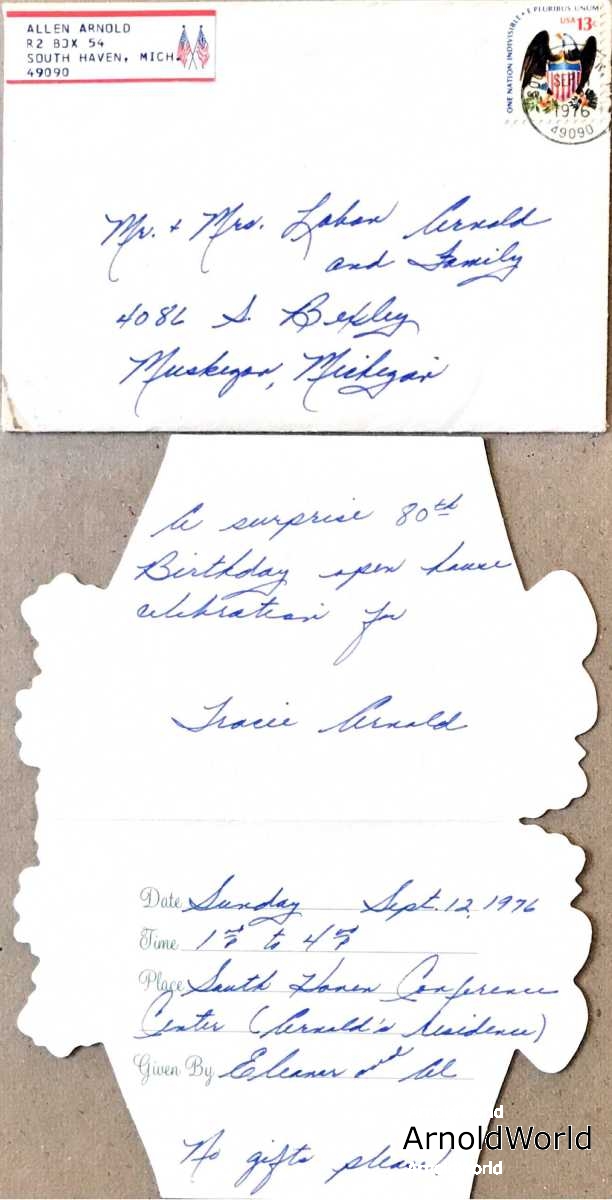 ALLEN ARNOLD
R2 BOX 54
SOUTH HAVEN, MICH.
49090
ONE NATION INDIVISIBLE • E PLURIBUS UNUM
USA 13c
SEP
1976
49090
Mr. + Mrs. Laban Arnold
and Family
4086 S. Bexley
Muskegon, Michigan
A surprise 80th
Birthday open house
celebration for
Tracie Arnold
Date Sunday Sept. 12, 1976
Time 1 to 4
Place South Haven Conference
Center (Arnold's residence)
Given By Eleanor and Al
No gifts please
ArnoldWorld